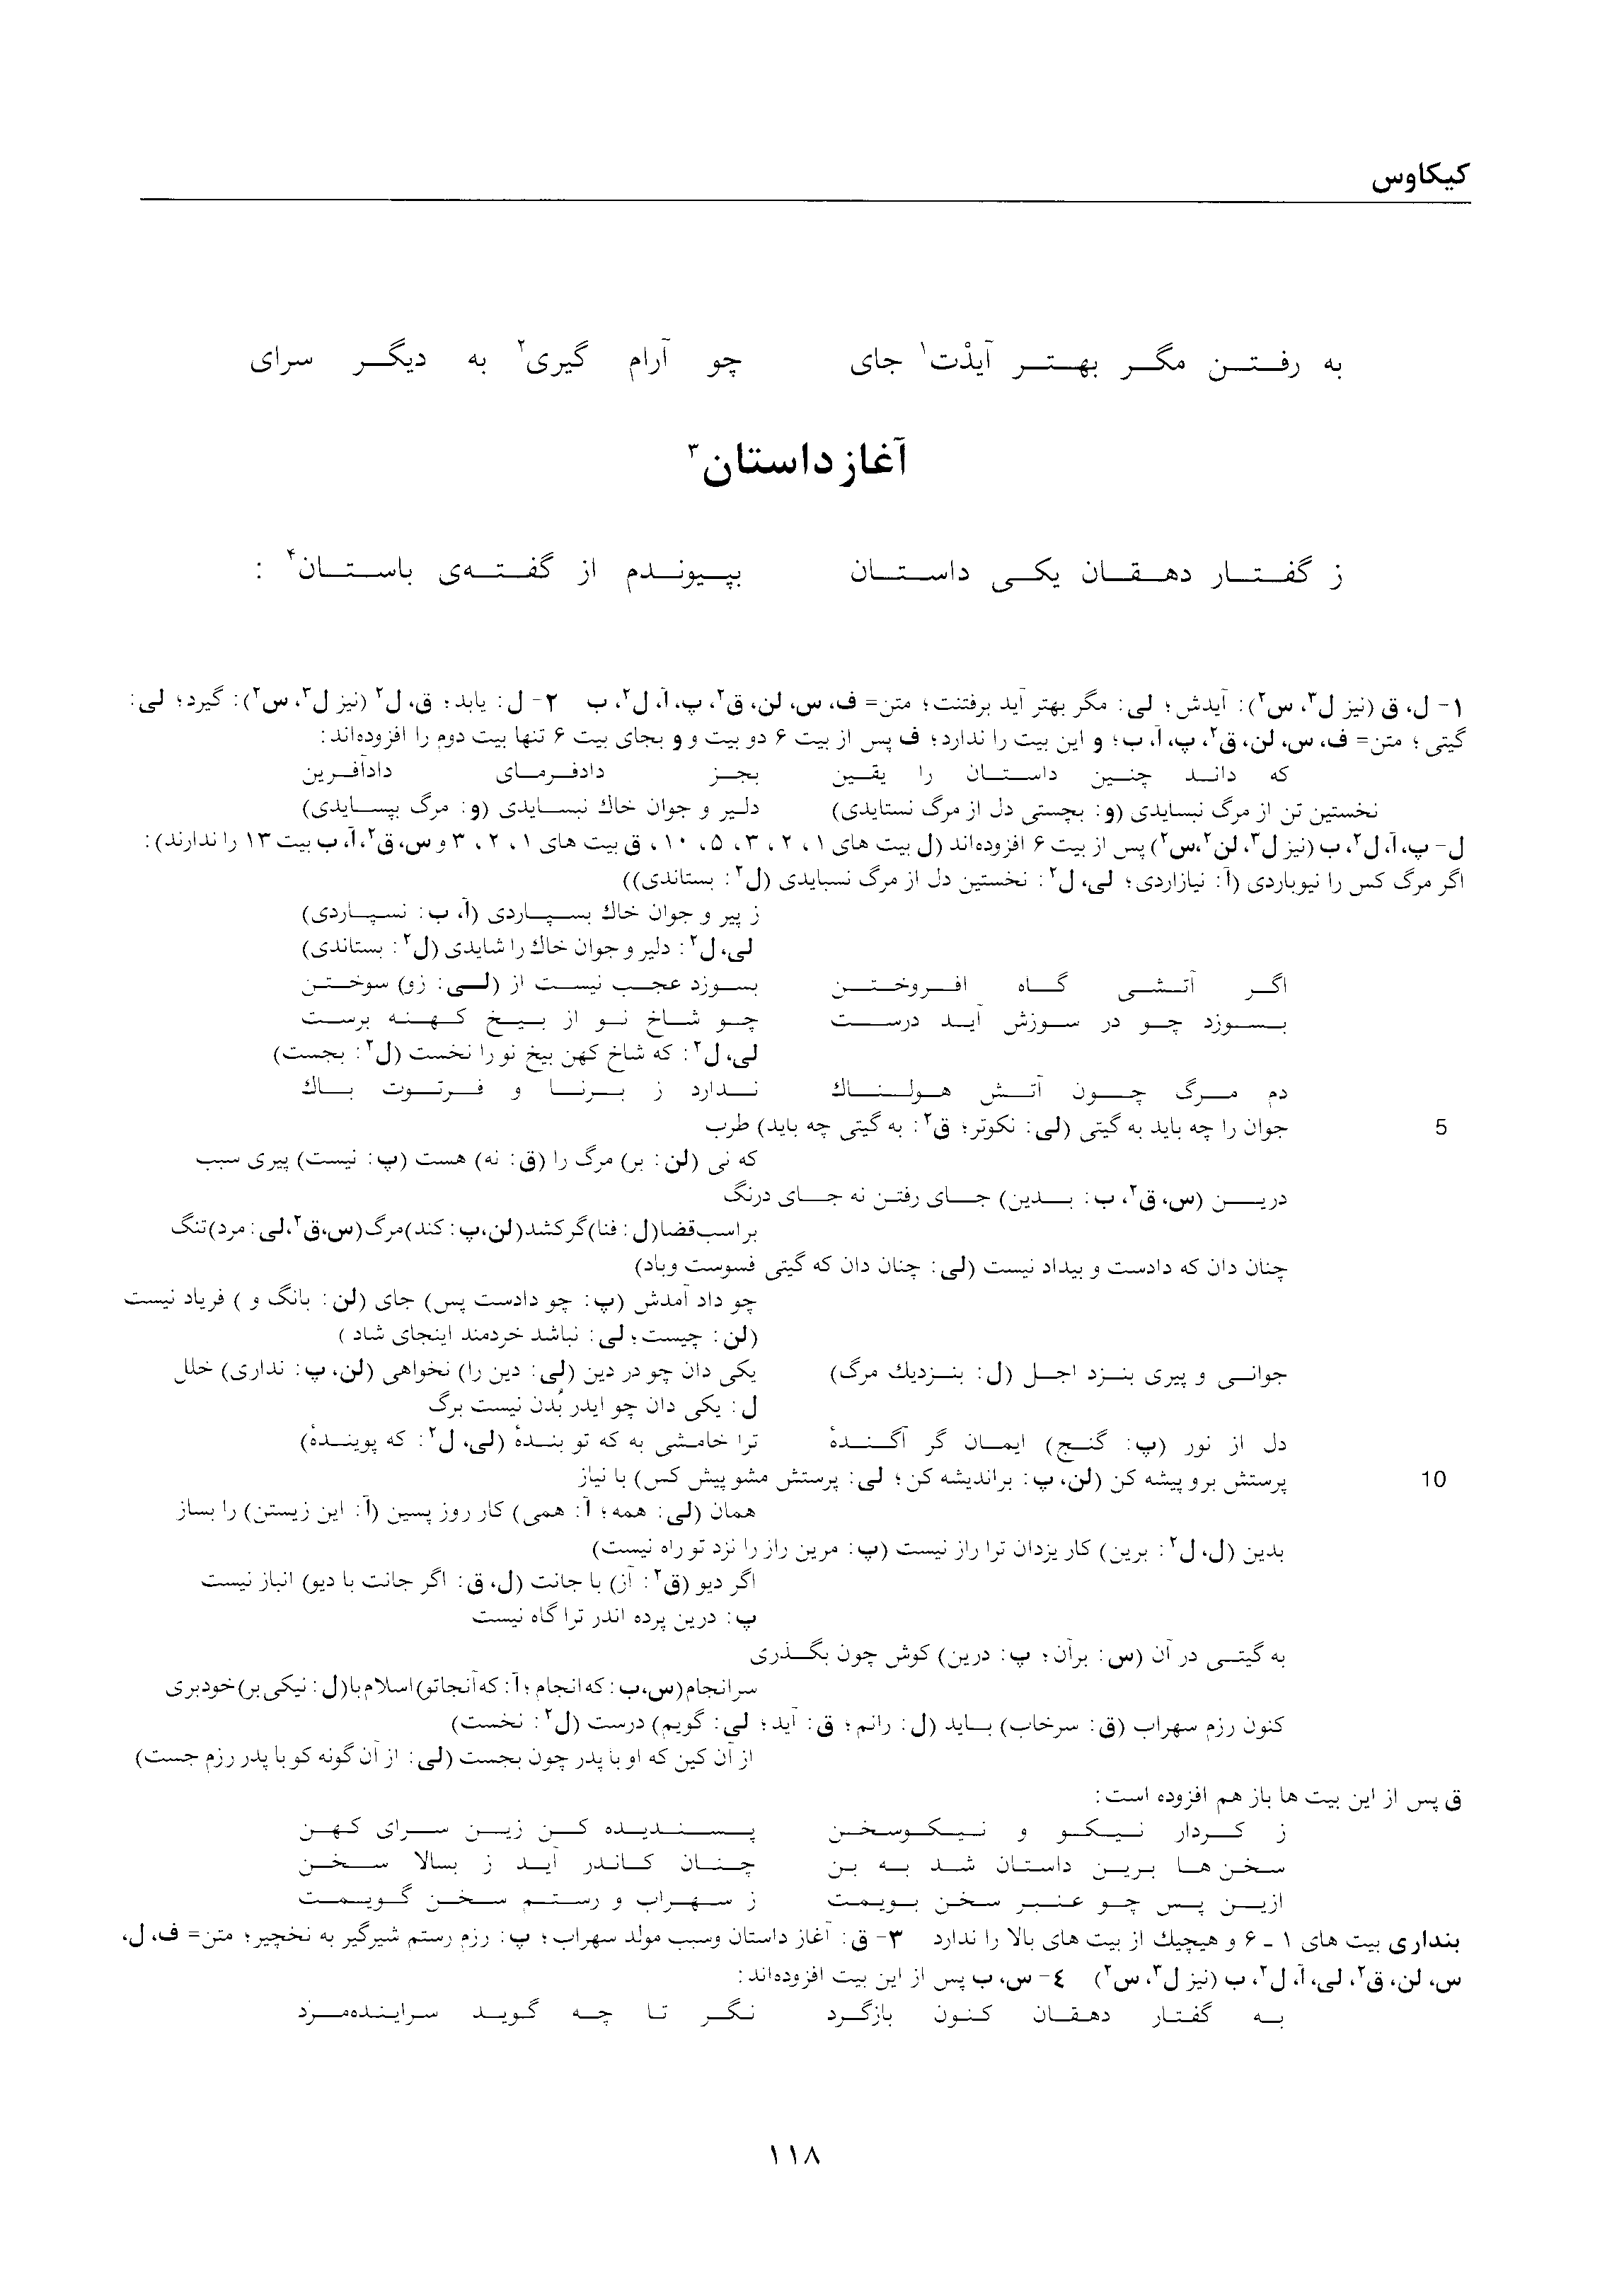 کیکاوس
به رفتن مگر بهتر آیدْت۱ جای چو آرام گیری۲ به دیگر سرای
آغاز داستان۳
ز گفتار دهقان یکی داستان بپیوندم از گفته‌ی باستان۴ :
۱- ل، ق (نیز ل۳، س۲): آیدش؛ لی: مگر بهتر آید برفتنت؛ متن= ف، س، لن، ق۲، پ، آ، ل۲، ب ۲- ل: یابد؛ ق، ل۲ (نیز ل۳، س۲): گیرد؛ لی:
گیتی؛ متن= ف، س، لن، ق۲، پ، آ، ب؛ و این بیت را ندارد؛ ف پس از بیت ۶ دو بیت و و بجای بیت ۶ تنها بیت دوم را افزوده‌اند:
که داند چنین داستان را یقین بجز دادفرمای دادآفرین
نخستین تن از مرگ نبسایدی (و: بجستی دل از مرگ نستایدی) دلیر و جوان خاك نبسایدی (و: مرگ بپسایدی)
ل- پ، آ، ل۲، ب (نیز ل۳، لن۲، س۲) پس از بیت ۶ افزوده‌اند (ل بیت های ۱، ۲، ۳، ۵، ۱۰، ق بیت های ۱، ۲، ۳ و س، ق۲، آ، ب بیت ۱۳ را ندارند):
اگر مرگ کس را نیوباردی (آ: نیازاردی؛ لی، ل۲: نخستین دل از مرگ نسبایدی (ل۲: بستاندی))
ز پیر و جوان خاك بسپاردی (آ، ب: نسپاردی)
لی، ل۲: دلیر و جوان خاك را شایدی (ل۲: بستاندی)
اگر آتشی گاه افروختن بسوزد عجب نیست از (لی: زو) سوختن
بسوزد چو در سوزش آید درست چو شاخ نو از بیخ کهنه برست
لی، ل۲: که شاخ کهن بیخ نو را نخست (ل۲: بجست)
دم مرگ چون آتش هولناك ندارد ز برنا و فرتوت باك
5 جوان را چه باید به گیتی (لی: نکوتر؛ ق۲: به گیتی چه باید) طرب
که نی (لن: بر) مرگ را (ق: نه) هست (پ: نیست) پیری سبب
درین (س، ق۲، ب: بدین) جای رفتن نه جای درنگ
بر اسب قضا (ل: فنا) گر کشد (لن، پ: کند) مرگ (س، ق۲، لی: مرد) تنگ
چنان دان که دادست و بیداد نیست (لی: چنان دان که گیتی فسوست و باد)
چو داد آمدش (پ: چو دادست پس) جای (لن: بانگ و ) فریاد نیست
(لن: چیست؛ لی: نباشد خردمند اینجای شاد )
جوانی و پیری بنزد اجل (ل: بنزدیك مرگ) یکی دان چو در دین (لی: دین را) نخواهی (لن، پ: نداری) خلل
ل: یکی دان چو ایدر بُدن نیست برگ
دل از نور (پ: گنج) ایمان گر آگندهٔ ترا خامشی به که تو بندهٔ (لی، ل۲: که پویندهٔ)
10 پرستش برو پیشه کن (لن، پ: براندیشه کن؛ لی: پرستش مشو پیش کس) با نیاز
همان (لی: همه؛ آ: همی) کار روز پسین (آ: این زیستن) را بساز
بدین (ل، ل۲: برین) کار یزدان ترا راز نیست (پ: مرین راز را نزد تو راه نیست)
اگر دیو (ق۲: آز) با جانت (ل، ق: اگر جانت با دیو) انباز نیست
پ: درین پرده اندر ترا گاه نیست
به گیتی در آن (س: برآن؛ پ: درین) کوش چون بگذری
سرانجام (س، ب: که انجام؛ آ: که آنجا تو) اسلام با (ل: نیکی بر) خود بری
کنون رزم سهراب (ق: سرخاب) باید (ل: رانم؛ ق: آید؛ لی: گویم) درست (ل۲: نخست)
از آن کین که او با پدر چون بجست (لی: از آن گونه کو با پدر رزم جست)
ق پس از این بیت ها باز هم افزوده است:
ز کردار نیکو و نیکوسخن پسندیده کن زین سرای کهن
سخن‌ها برین داستان شد به بن چنان کاندر آید ز بسالا سخن
ازین پس چو عنبر سخن بویمت ز سهراب و رستم سخن گویمت
بنداری بیت های ۱ ـ ۶ و هیچیك از بیت های بالا را ندارد ۳- ق: آغاز داستان وسبب مولد سهراب؛ پ: رزم رستم شیرگیر به نخچیر؛ متن= ف، ل،
س، لن، ق۲، لی، آ، ل۲، ب (نیز ل۳، س۲) ٤- س، ب پس از این بیت افزوده‌اند:
به گفتار دهقان کنون بازگرد نگر تا چه گوید سراینده‌مرد
۱۱۸